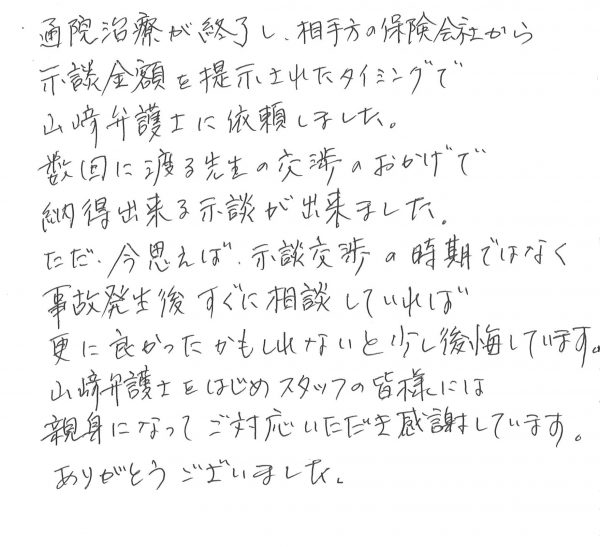 通院治療が終了し、相手方の保険会社から
示談金額を提示されたタイミングで
山﨑弁護士に依頼しました。
数回に渡る先生の交渉のおかげで
納得出来る示談が出来ました。
ただ、今思えば、示談交渉の時期ではなく
事故発生後すぐに相談していれば
更に良かったかもしれないと少し後悔しています。
山﨑弁護士をはじめスタッフの皆様には
親身になってご対応いただき感謝しています。
ありがとうございました。